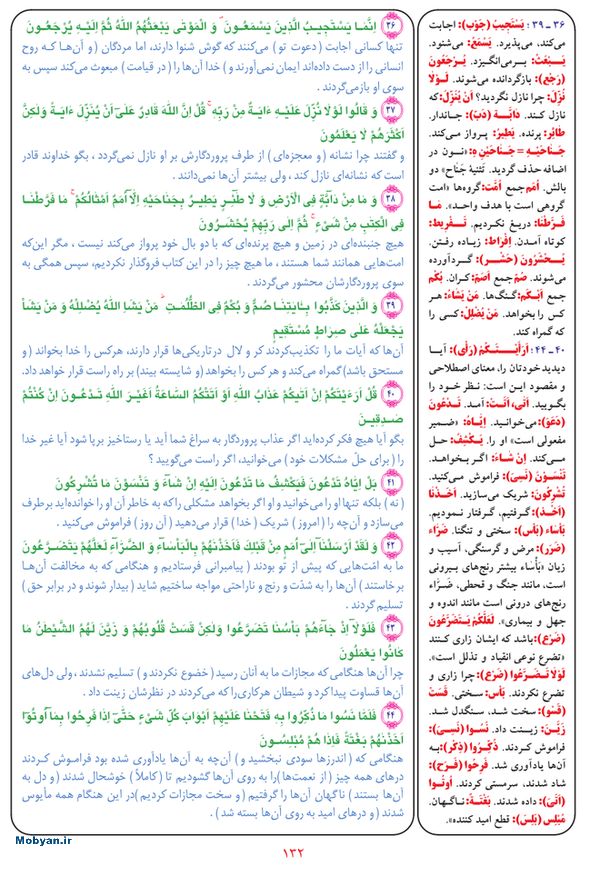 ۳۶ إِنَّمَا يَسْتَجِيبُ الَّذِينَ يَسْمَعُونَ ۘ وَ الْمَوْتَى يَبْعَثُهُمُ اللَّهُ ثُمَّ إِلَيْهِ يُرْجَعُونَ
تنها کسانی اجابت (دعوت تو) می‌کنند که گوش شنوا دارند، اما مردگان (و آن‌ها که روح
انسانی را از دست داده‌اند ایمان نمی‌آورند و) خدا آن‌ها را (در قیامت) مبعوث می‌کند سپس به
سوی او بازمی‌گردند.
۳۷ وَ قَالُوا لَوْلَا نُزِّلَ عَلَيْهِ ءَايَةٌ مِنْ رَبِّهِ ۚ قُلْ إِنَّ اللَّهَ قَادِرٌ عَلَىٰ أَنْ يُنَزِّلَ ءَايَةً وَلَكِنَّ
أَكْثَرَهُمْ لَا يَعْلَمُونَ
و گفتند چرا نشانه (و معجزه‌ای) از طرف پروردگارش بر او نازل نمی‌گردد ، بگو خداوند قادر
است که نشانه‌ای نازل کند ، ولی بیشتر آن‌ها نمی‌دانند .
۳۸ وَ مَا مِنْ دَابَّةٍ فِى الْأَرْضِ وَ لَا طَٰئِرٍ يَطِيرُ بِجَنَاحَيْهِ إِلَّا أُمَمٌ أَمْثَالُكُمْ ۚ مَا فَرَّطْنَا
فِى الْكِتَٰبِ مِنْ شَىْءٍ ۚ ثُمَّ إِلَى رَبِّهِمْ يُحْشَرُونَ
هیچ جنبنده‌ای در زمین و هیچ پرنده‌ای که با دو بال خود پرواز می‌کند نیست ، مگر این‌که
امت‌هایی همانند شما هستند ، ما هیچ چیز را در این کتاب فروگذار نکردیم، سپس همگی به
سوی پروردگارشان محشور می‌گردند .
۳۹ وَ الَّذِينَ كَذَّبُوا بِـَٔايَٰتِنَا صُمٌّ وَ بُكْمٌ فِى الظُّلُمَٰتِ ۗ مَنْ يَشَأِ اللَّهُ يُضْلِلْهُ وَ مَنْ يَشَأْ
يَجْعَلْهُ عَلَى صِرَاطٍ مُسْتَقِيمٍ
آن‌ها که آیات ما را تکذیب‌کردند کر و لال درتاریکی‌ها قرار دارند، هرکس را خدا بخواند (و
مستحق باشد)گمراه می‌کند و هر کس را بخواهد (و شایسته بیند) بر راه راست قرار خواهد داد.
۴۰ قُلْ أَرَءَيْتَكُمْ إِنْ أَتَىٰكُمْ عَذَابُ اللَّهِ أَوْ أَتَتْكُمُ السَّاعَةُ أَغَيْرَ اللَّهِ تَدْعُونَ إِنْ كُنْتُمْ
صَٰدِقِينَ
بگو آیا هیچ فکر کرده‌اید اگر عذاب پروردگار به سراغ شما آید یا رستاخیز برپا شود آیا غیر خدا
را ( برای حلّ مشکلات خود ) می‌خوانید، اگر راست می‌گویید ؟
۴۱ بَلْ إِيَّاهُ تَدْعُونَ فَيَكْشِفُ مَا تَدْعُونَ إِلَيْهِ إِنْ شَاءَ وَ تَنْسَوْنَ مَا تُشْرِكُونَ
( نه ) بلکه تنها او را می‌خوانید و او اگر بخواهد مشکلی راکه به خاطر آن او را خوانده‌اید برطرف
می‌سازد و آن‌چه را (امروز) شریک (خدا ) قرار می‌دهید (آن روز) فراموش می‌کنید .
۴۲ وَ لَقَدْ أَرْسَلْنَا إِلَىٰ أُمَمٍ مِنْ قَبْلِكَ فَأَخَذْنَٰهُمْ بِالْبَأْسَاءِ وَ الضَّرَّاءِ لَعَلَّهُمْ يَتَضَرَّعُونَ
ما به امّت‌هایی که پیش از تو بودند ( پیامبرانی فرستادیم و هنگامی که به مخالفت آن‌ها
برخاستند ) آن‌ها را به شدّت و رنج و ناراحتی مواجه ساختیم شاید ( بیدار شوند و در برابر حق )
تسلیم گردند .
۴۳ فَلَوْلَا إِذْ جَاءَهُمْ بَأْسُنَا تَضَرَّعُوا وَلَكِنْ قَسَتْ قُلُوبُهُمْ وَ زَيَّنَ لَهُمُ الشَّيْطَٰنُ مَا
كَانُوا يَعْمَلُونَ
چرا آن‌ها هنگامی که مجازات ما به آنان رسید ( خضوع نکردند و ) تسلیم نشدند ، ولی دل‌های
آن‌ها قساوت پیداکرد و شیطان هرکاری‌را که می‌کردند در نظرشان زینت داد .
۴۴ فَلَمَّا نَسُوا مَا ذُكِّرُوا بِهِ فَتَحْنَا عَلَيْهِمْ أَبْوَابَ كُلِّ شَىْءٍ حَتَّىٰ إِذَا فَرِحُوا بِمَا أُوتُوا
أَخَذْنَٰهُمْ بَغْتَةً فَإِذَا هُمْ مُبْلِسُونَ
هنگامی که ( اندرزها سودی نبخشید و ) آن‌چه به آن‌ها یادآوری شده بود فراموش کردند
درهای همه چیز ( از نعمت‌ها )را به روی آن‌ها گشودیم تا (کاملاً ) خوشحال شدند ( و دل به
آن‌ها بستند ) ناگهان آن‌ها را گرفتیم ( و سخت مجازات کردیم )در این هنگام همه مأیوس
شدند ( و درهای امید به روی آن‌ها بسته شد ) .
۳۶ ـ ۳۹ : يَسْتَجِيبُ (جَوْب): اجابت
می‌کند، می‌پذیرد. يَسْمَعُ: می‌شنود.
يَبْعَثُ: برمی‌انگیزد. يُرْجَعُونَ
(رَجْع): بازگردانده می‌شوند. لَوْلَا
نُزِّلَ: چرا نازل نگردید؟ أَنْ يُنَزِّلَ: که
نازل کند. دَابَّة (دَبّ): جاندار.
طَائِر: پرنده. يَطِيرُ: پرواز می‌کند.
جَنَاحَيْهِ = جَنَاحَيْنِ هِ: «نون در
اضافه حذف گردید. تثنیهٔ جَنَاح» دو
بالش. أُمَم جمع أُمَّت: گروه‌ها «امت
گروهی است با هدف واحد». مَا
فَرَّطْنَا: دریغ نکردیم. تَفْرِيط:
کوتاه آمدن. إِفْرَاط: زیاده رفتن.
يُحْشَرُونَ (حَشْر): گردآورده
می‌شوند. صُمّ جمع أَصَمّ: کران. بُكْم
جمع أَبْكَم: گنگ‌ها. مَنْ يَشَاءُ: هر
کس را بخواهد. مَنْ يُضْلِلْ: کسی را
که گمراه کند.
۴۰ ـ ۴۴ : أَرَأَيْتَكُمْ (رَأْی): آیا
دیدید خودتان را، معنای اصطلاحی
و مقصود این است: نظر خود را
بگویید. أَتَىٰ، أَتَتْ: آمد. تَدْعُونَ
(دَعْوَ): می‌خوانید. إِيَّاهُ: «ضمیر
مفعولی است» او را. يَكْشِفُ: حل
می‌کند. إِنْ شَاءَ: اگر بخواهد.
تَنْسَوْنَ (نَسِیَ): فراموش می‌کنید.
تُشْرِكُونَ: شریک می‌سازید. أَخَذْنَا
(أَخَذَ): گرفتیم، گرفتار نمودیم.
بَأْسَاء (بَأْس): سختی و تنگنا. ضَرَّاء
(ضَرَر): مرض و گرسنگی، آسیب و
زیان «بَأْسَاء بیشتر رنج‌های بیرونی
است، مانند جنگ و قحطی، ضَرَّاء
رنج‌های درونی است مانند اندوه و
جهل و بیماری». لَعَلَّكُمْ يَتَضَرَّعُونَ
(ضَرَع): باشد که ایشان زاری کنند
«تضرع نوعی انقیاد و تذلل است».
لَوْلَا تَضَرَّعُوا (ضَرَع): چرا زاری و
تضرع نکردند. بَأْس: سختی. قَسَتْ
(قَسْو): سخت شد، سنگدل شد.
زَيَّنَ: زیسنت داد. نَسُوا (نَسِیَ):
فراموش کردند. ذُكِّرُوا (ذِكْر): به
آن‌ها یادآوری شد. فَرِحُوا (فَرَح):
شاد شدند، سرمستی کردند. أُوتُوا
(أَتَیَ): داده شدند. بَغْتَةً: ناگهان.
مُبْلِس (بَلَس): قطع امید کننده».
Mobyan.ir
۱۳۲